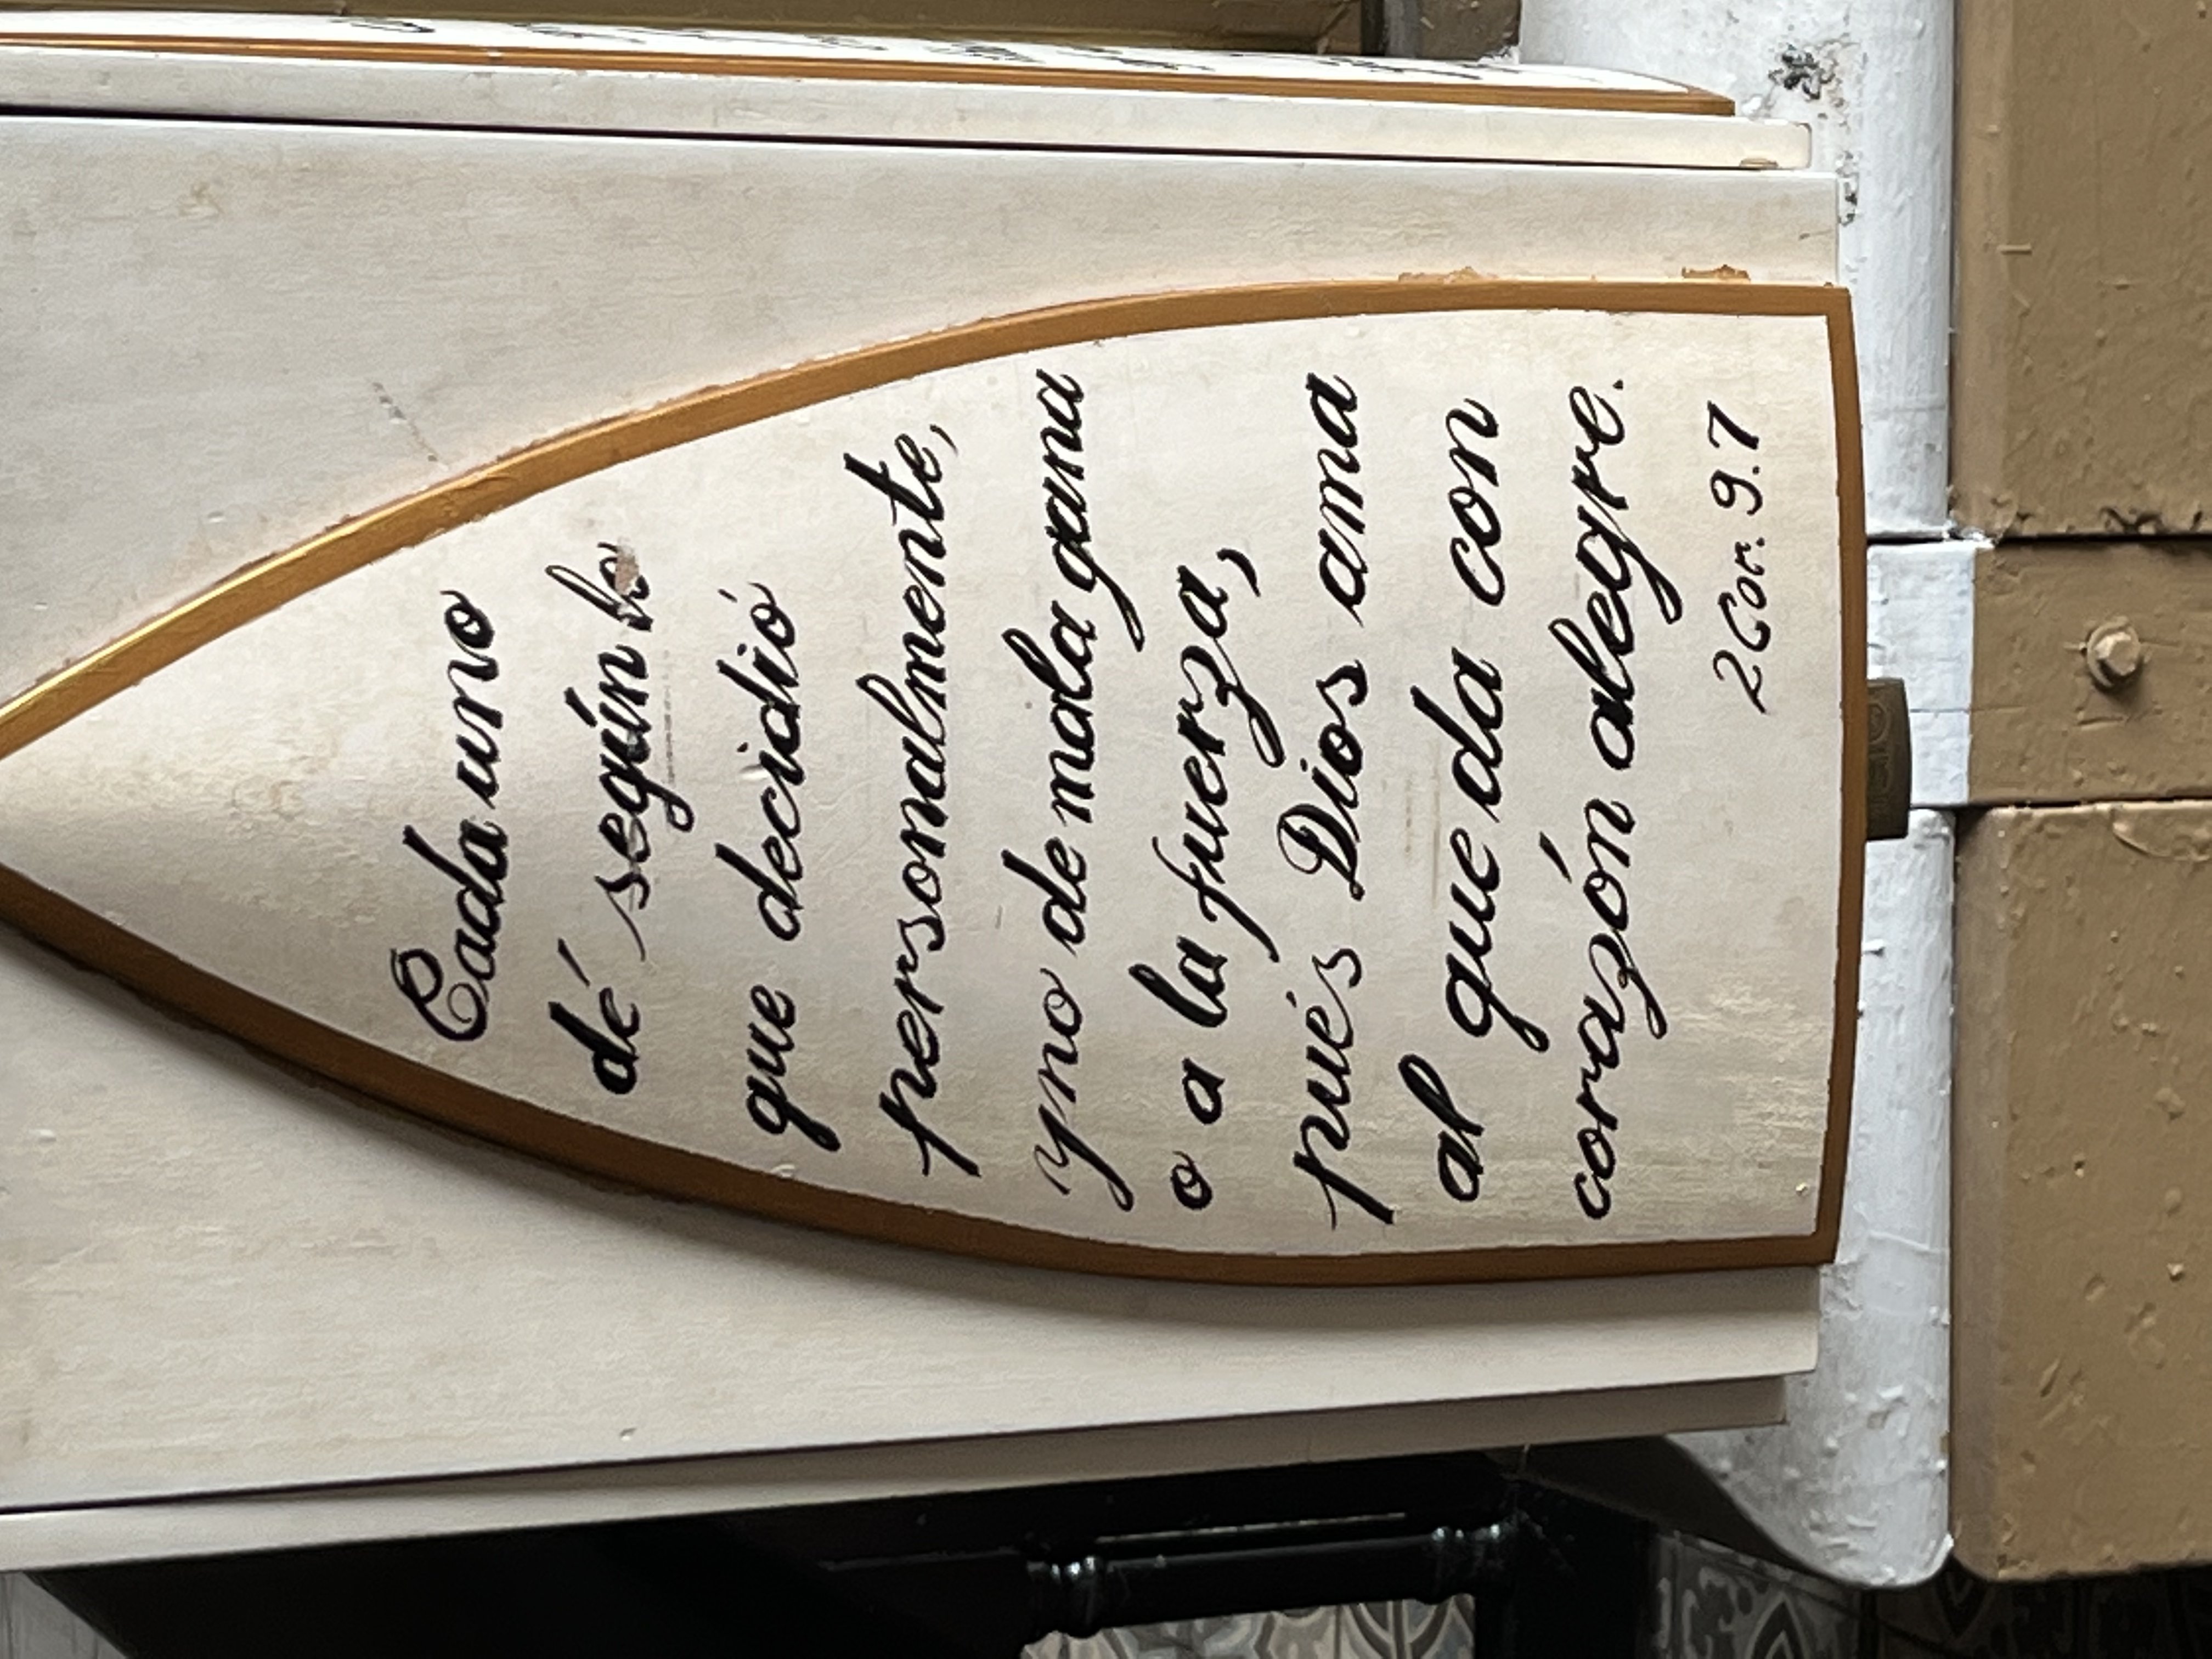 Cada uno
dé según lo
que decidió
personalmente,
y no de mala gana
o a la fuerza,
pués Dios ama
al que da con
corazón alegre.
2 Cor. 9.7